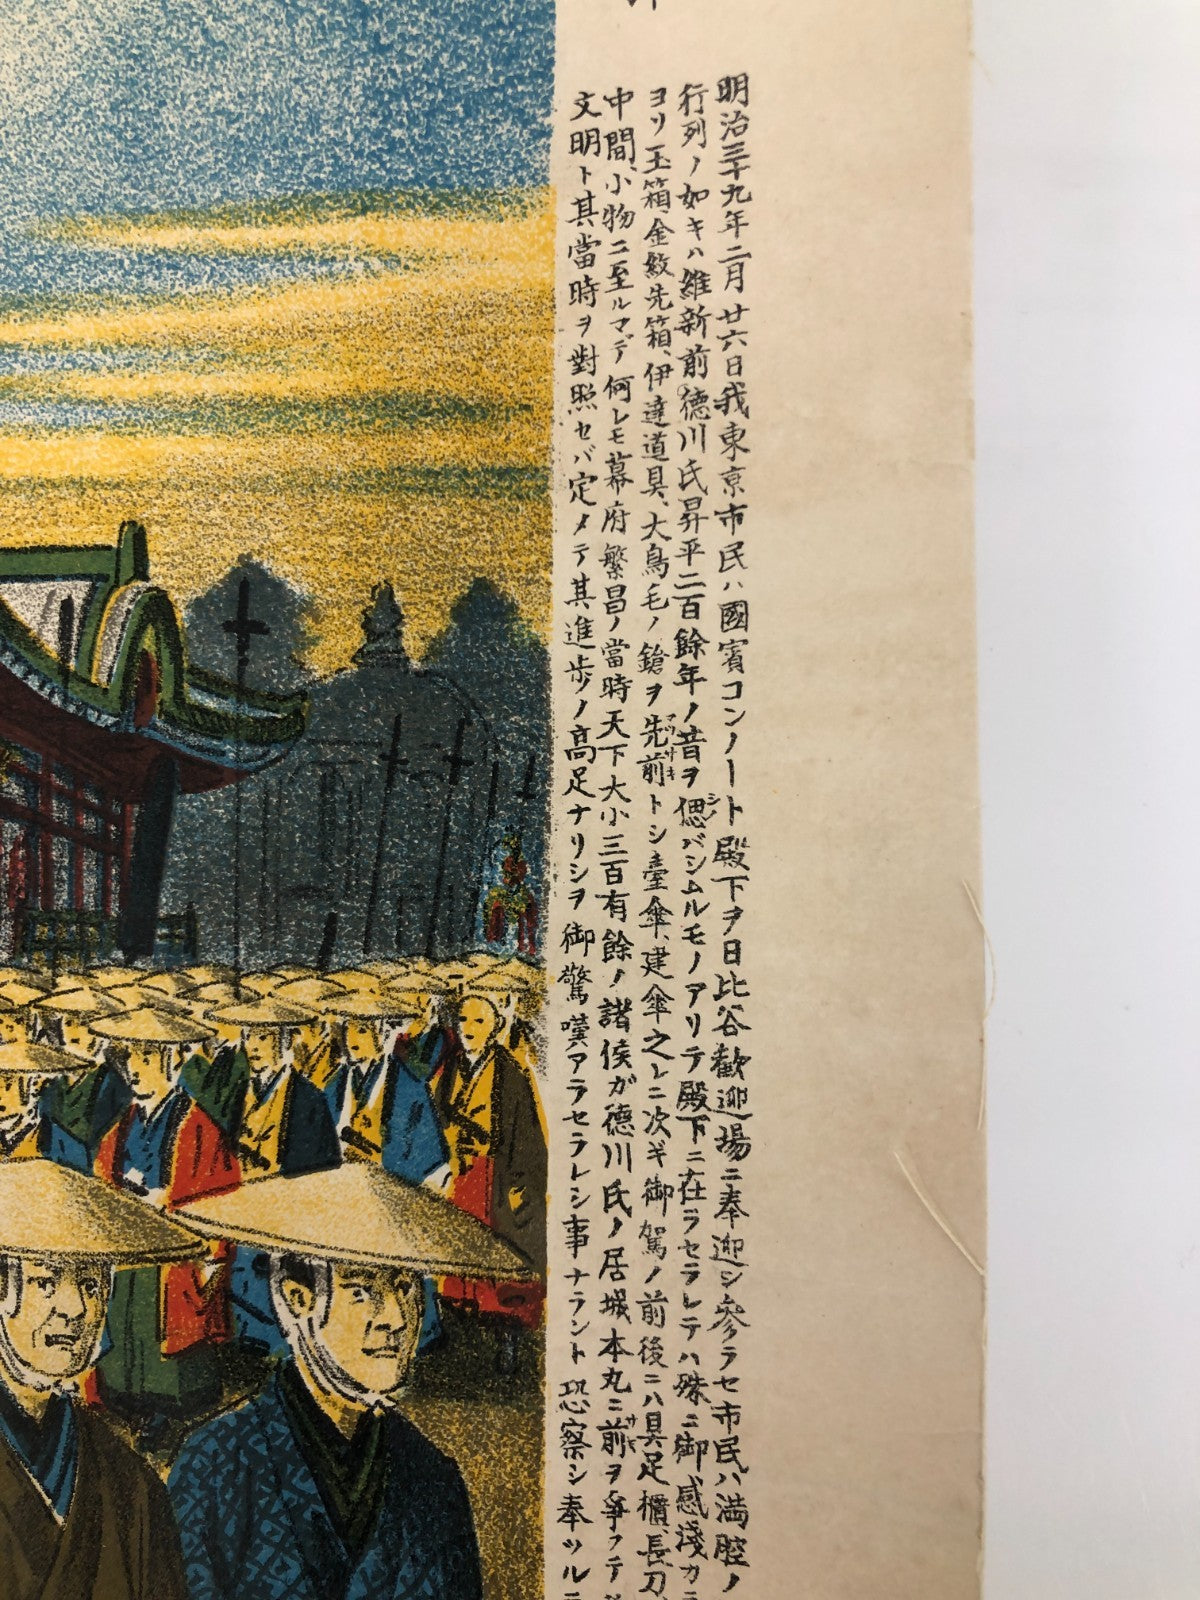 明治三十九年二月廿六日我東京市民ハ國賓コンノート殿下ヲ日比谷歡迎場ニ奉迎シ參ラセ市民ハ満腔ノ
行列ノ如キハ維新前德川氏昇平二百餘年ノ昔ヲ偲バシムルモノアリテ殿下ニ在ラセラレテハ殊ニ御感淺カラ
ヨリ玉箱、金紋先箱、伊達道具、大鳥毛ノ鎗ヲ先前トシ臺傘、建傘之レニ次ギ御駕ノ前後ニハ具足櫃、長刀、
中間、小物ニ至ルマデ何レモ幕府繁昌ノ當時天下大小三百有餘ノ諸侯ガ德川氏ノ居城本丸ニ前ヲ爭フテ
文明ト其當時ヲ對照セバ定メテ其進歩ノ高足ナリシヲ御驚嘆アラセラレシ事ナラント恐察シ奉ツル